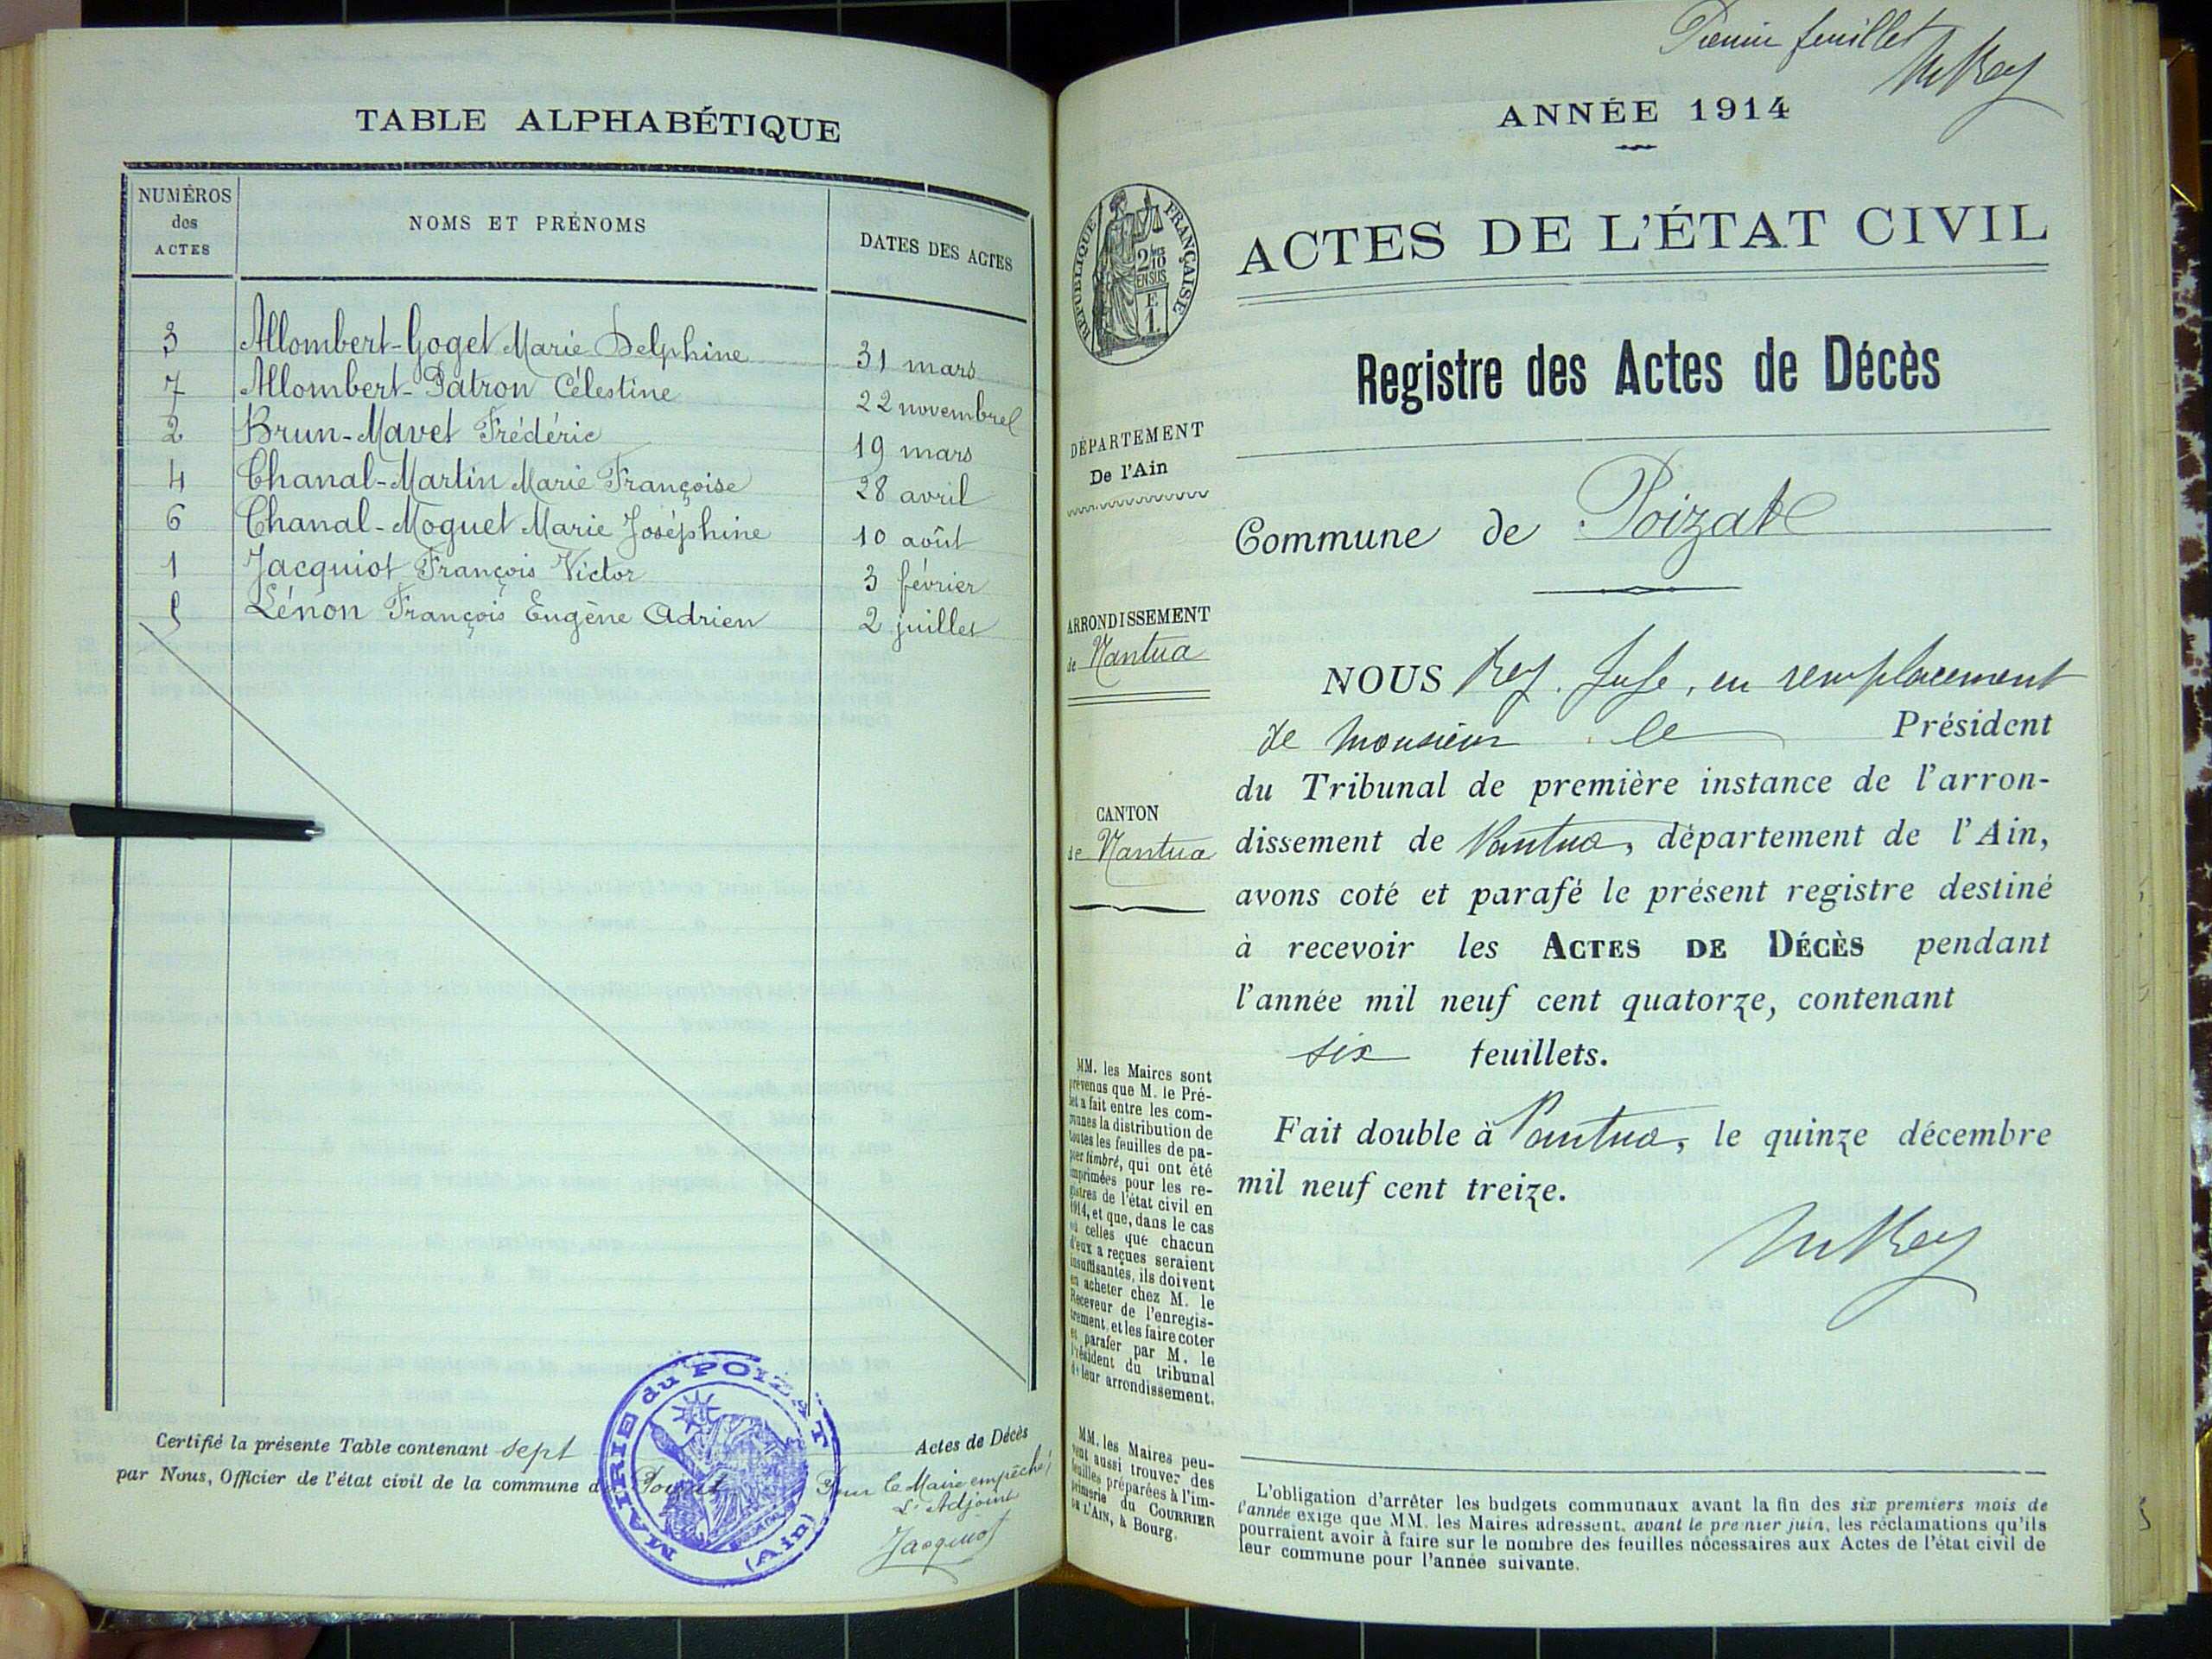 TABLE ALPHABÉTIQUE
NUMÉROS des ACTES
NOMS ET PRÉNOMS
DATES DES ACTES
3 Allombert-Goget Marie Delphine 31 mars
7 Allombert-Patron Célestine 22 novembre
2 Brun-Mavet Frédéric 19 mars
4 Chanal-Martin Marie Françoise 28 avril
6 Chanal-Moguet Marie Joséphine 10 août
1 Jacquiot François Victor 3 février
Lénon François Eugène Adrien 2 juillet
Certifié la présente Table contenant sept Actes de Décès
par Nous, Officier de l'état civil de la commune d Poizat
Pour le Maire empêché
L'Adjoint
Jacquiot
MAIRIE du POIZAT (Ain)
Premier feuillet
MRey
ANNÉE 1914
RÉPUBLIQUE FRANÇAISE
2 10 EN SUS
E 1.
ACTES DE L'ÉTAT CIVIL
Registre des Actes de Décès
DÉPARTEMENT
De l'Ain
Commune de Poizat
ARRONDISSEMENT
de Nantua
CANTON
de Nantua
NOUS Rey, Juge, en remplacement
de Monsieur le Président
du Tribunal de première instance de l'arron-
dissement de Nantua, département de l'Ain,
avons coté et parafé le présent registre destiné
à recevoir les ACTES DE DÉCÈS pendant
l'année mil neuf cent quatorze, contenant
six feuillets.
Fait double à Nantua, le quinze décembre
mil neuf cent treize.
MRey
MM. les Maires sont
prévenus que M. le Pré-
fet a fait entre les com-
munes la distribution de
toutes les feuilles de pa-
pier timbré, qui ont été
imprimées pour les re-
gistres de l'état civil en
1914, et que, dans le cas
où celles que chacun
d'eux a reçues seraient
insuffisantes, ils doivent
en acheter chez M. le
Receveur de l'enregis-
trement, et les faire coter
et parafer par M. le
Président du tribunal
de leur arrondissement.
MM. les Maires peu-
vent aussi trouver des
feuilles préparées à l'im-
primerie du COURRIER
DE L'AIN, à Bourg.
L'obligation d'arrêter les budgets communaux avant la fin des six premiers mois de
l'année exige que MM. les Maires adressent, avant le premier juin, les réclamations qu'ils
pourraient avoir à faire sur le nombre des feuilles nécessaires aux Actes de l'état civil de
leur commune pour l'année suivante.